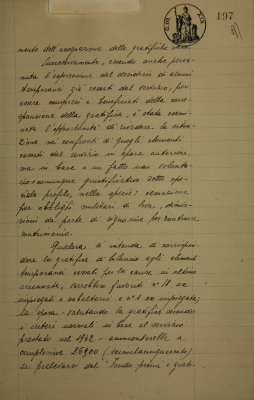 197
mento dell'assegnazione delle gratifiche
Successivamente, essendo anche perve-
nuta l'espressione del desiderio di alcuni
temporanei già cessati dal servizio, per
essere compresi e beneficiati della corre-
sponsione della gratifica, è stata esami-
nata l'opportunità di
zione nei confronti di quegli elementi
cessati dal servizio in epoca anteriore,
ma in base a un fatto non volonta-
rio o comunque giustificativo sotto spe-
ciale profilo, nella specie: cessazione
per obblighi militari di leva, dimis-
sioni da parte di signorine per contrarre
matrimonio.
Qualora si intenda di corrispon-
dere la gratifica di bilancio agli elementi
temporanei cessati per le cause in ultimo
accennate, verrebbero favoriti n° 18 ex
impiegati e subalterni e n° 1 ex impiegata;
la spesa - valutando la gratifica secondo
i criteri normali in base al servizio
prestato nel 1942 - ammonterebbe a
complessive L. 6900 (seimilanovecento)
da prelevarsi dal "Fondo premi e grati-